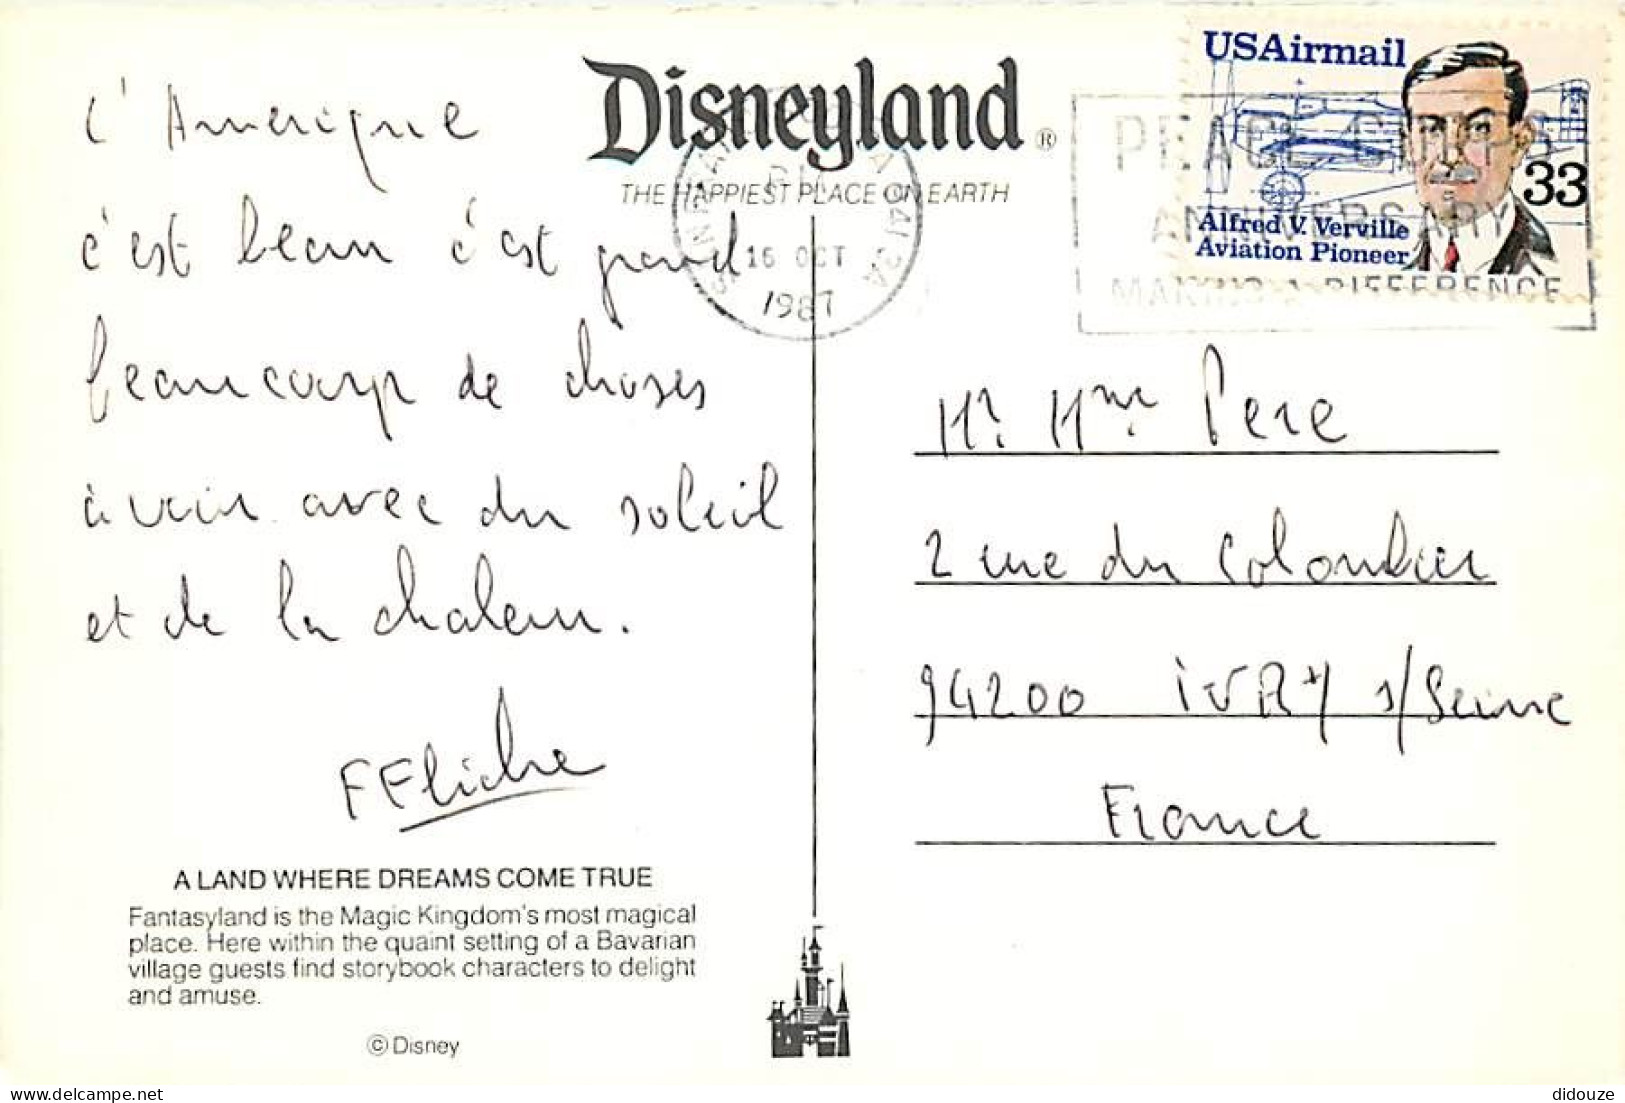 L'Amérique
c'est beau c'est grand
beaucoup de choses
à voir avec du soleil
et de la chaleur.
FFliche
A LAND WHERE DREAMS COME TRUE
Fantasyland is the Magic Kingdom's most magical
place. Here within the quaint setting of a Bavarian
village guests find storybook characters to delight
and amuse.
© Disney
Disneyland®
THE HAPPIEST PLACE ON EARTH
16 OCT
1987
USAirmail
33
Alfred V. Verville
Aviation Pioneer
PEACE CORPS
ANNIVERSARY
MAKING A DIFFERENCE
Mr. Mme Pere
2 rue du Colombier
94200 IVRY s/Seine
France
delcampe.net
didouze